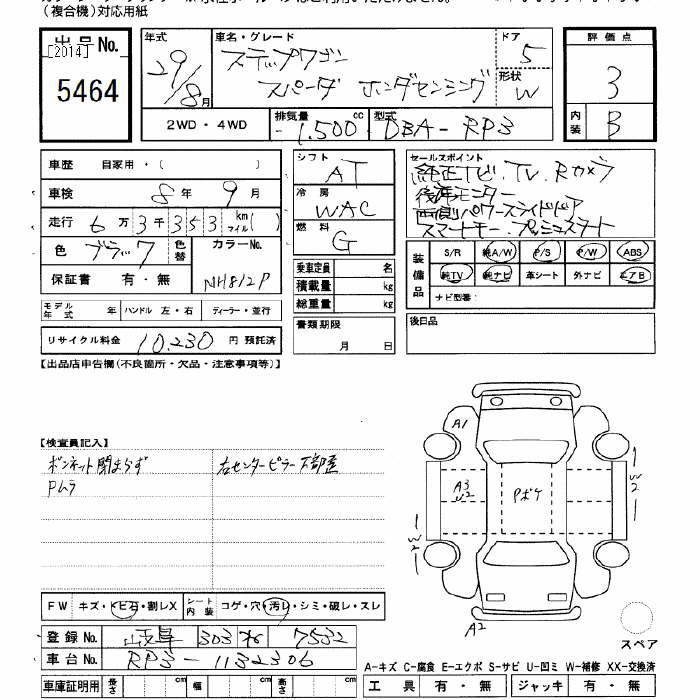 (複合機)対応用紙
出品No.
[2014]
5464
年式 車名・グレード ドア
29/8月 ステップワゴン 5
スパーダ ホンダセンシング 形状 W
2WD・4WD 排気量 1,500 cc 型式 DBA-RP3
評価点
3
内装 B
車歴 自家用・( )
車検 8年 9月
走行 6万3千353 km マイル( )
色 ブラック 色替 カラーNo.
保証書 有・無 NH812P
モデル年式 年 ハンドル 左・右 ディーラー・並行
リサイクル料金 10,230 円 預託済
シフト AT
冷房 WAC
燃料 G
乗車定員 名
積載量 kg
総重量 kg
書類期限
月 日
セールスポイント
純正ナビ.TV.Rカメラ
後席モニター
両側パワースライドドア
スマートキー.プッシュスタート
装備品 S/R 純A/W P/S P/W ABS
純TV 純ナビ 革シート 外ナビ エアB
ナビ型番:
後日品
【出品店申告欄(不良箇所・欠品・注意事項等)】
【検査員記入】
ボンネット閉まらず 右センターピラー下部歴
Pムラ
A1
A3
U2
Pボケ
W2
W2
A2
スペア
FW キズ・トビ石・割レX シート内装 コゲ・穴・汚レ・シミ・破レ・スレ
登録No. 岐阜 303 れ 7532
車台No. RP3-1132306
車庫証明用 長さ cm 幅 cm 高さ cm
A-キズ C-腐食 E-エクボ S-サビ U-凹ミ W-補修 XX-交換済
工具 有・無 ジャッキ 有・無